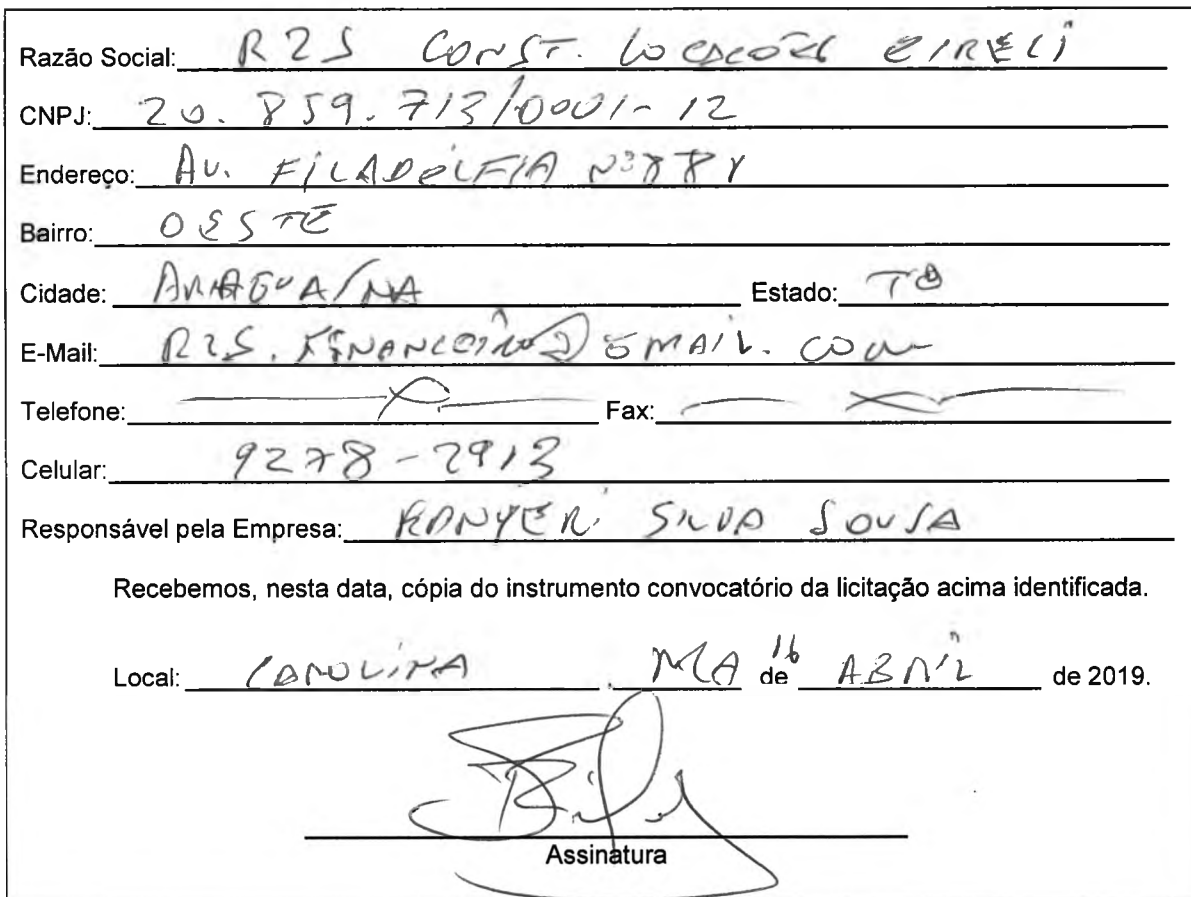 Razão Social: R2S CONST. LOCAÇÕES EIRELI
CNPJ: 20.859.713/0001-12
Endereço: AV. FILADELFIA Nº
Bairro: OESTE
Cidade: ARAGUAINA Estado: TO
E-Mail: R2S.FINANCEIRO@GMAIL.COM
Telefone: Fax:
Celular: 9278-2913
Responsável pela Empresa: RANYERI SILVA SOUSA
Recebemos, nesta data, cópia do instrumento convocatório da licitação acima identificada.
Local: CAROLINA, MA 16 de ABRIL de 2019.
Assinatura